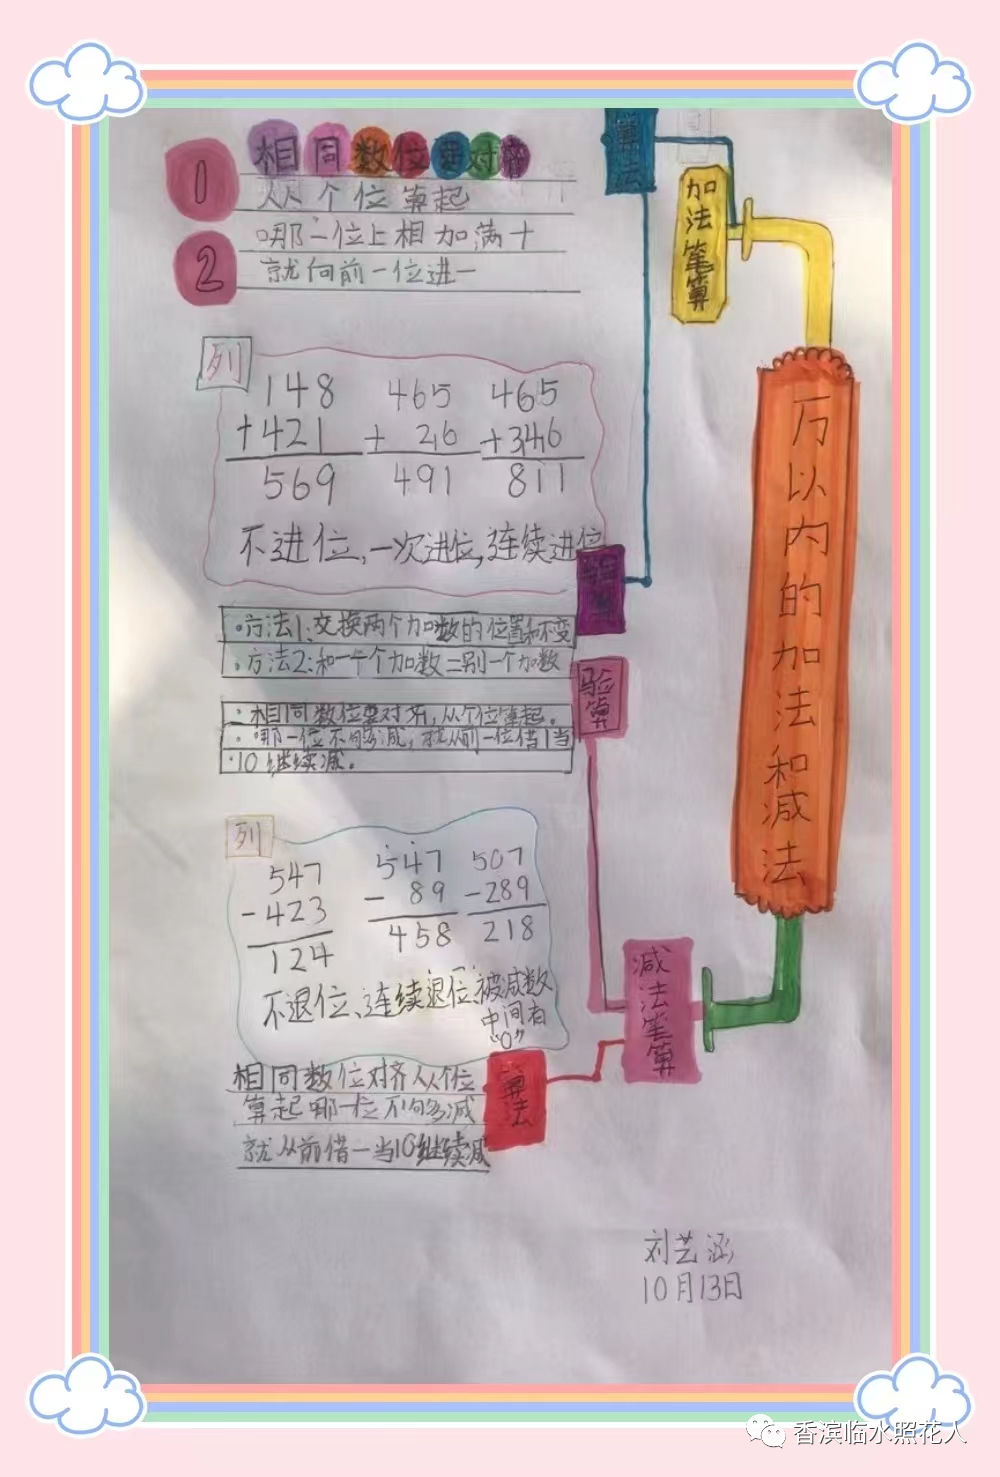 1 相同数位要对齐
从个位算起
2 哪一位上相加满十
就向前一位进一
算法
加法笔算
万以内的加法和减法
列
148 465 465
+421 + 26 +346
569 491 811
不进位、一次进位,连续进位
·方法1:交换两个加数的位置和不变
·方法2:和一一个加数二别一个加数
验算
:相同数位要对齐,从个位算起。
·哪一位不够减,就从前一位借1当
·10继续减。
列
547 547 507
-423 - 89 -289
124 458 218
不退位、连续退位、被减数
中间有
“0”
减法笔算
算法
相同数位对齐从个位
算起哪一位不够减
就从前借一当10继续减
刘艺涵
10月13日
香滨临水照花人